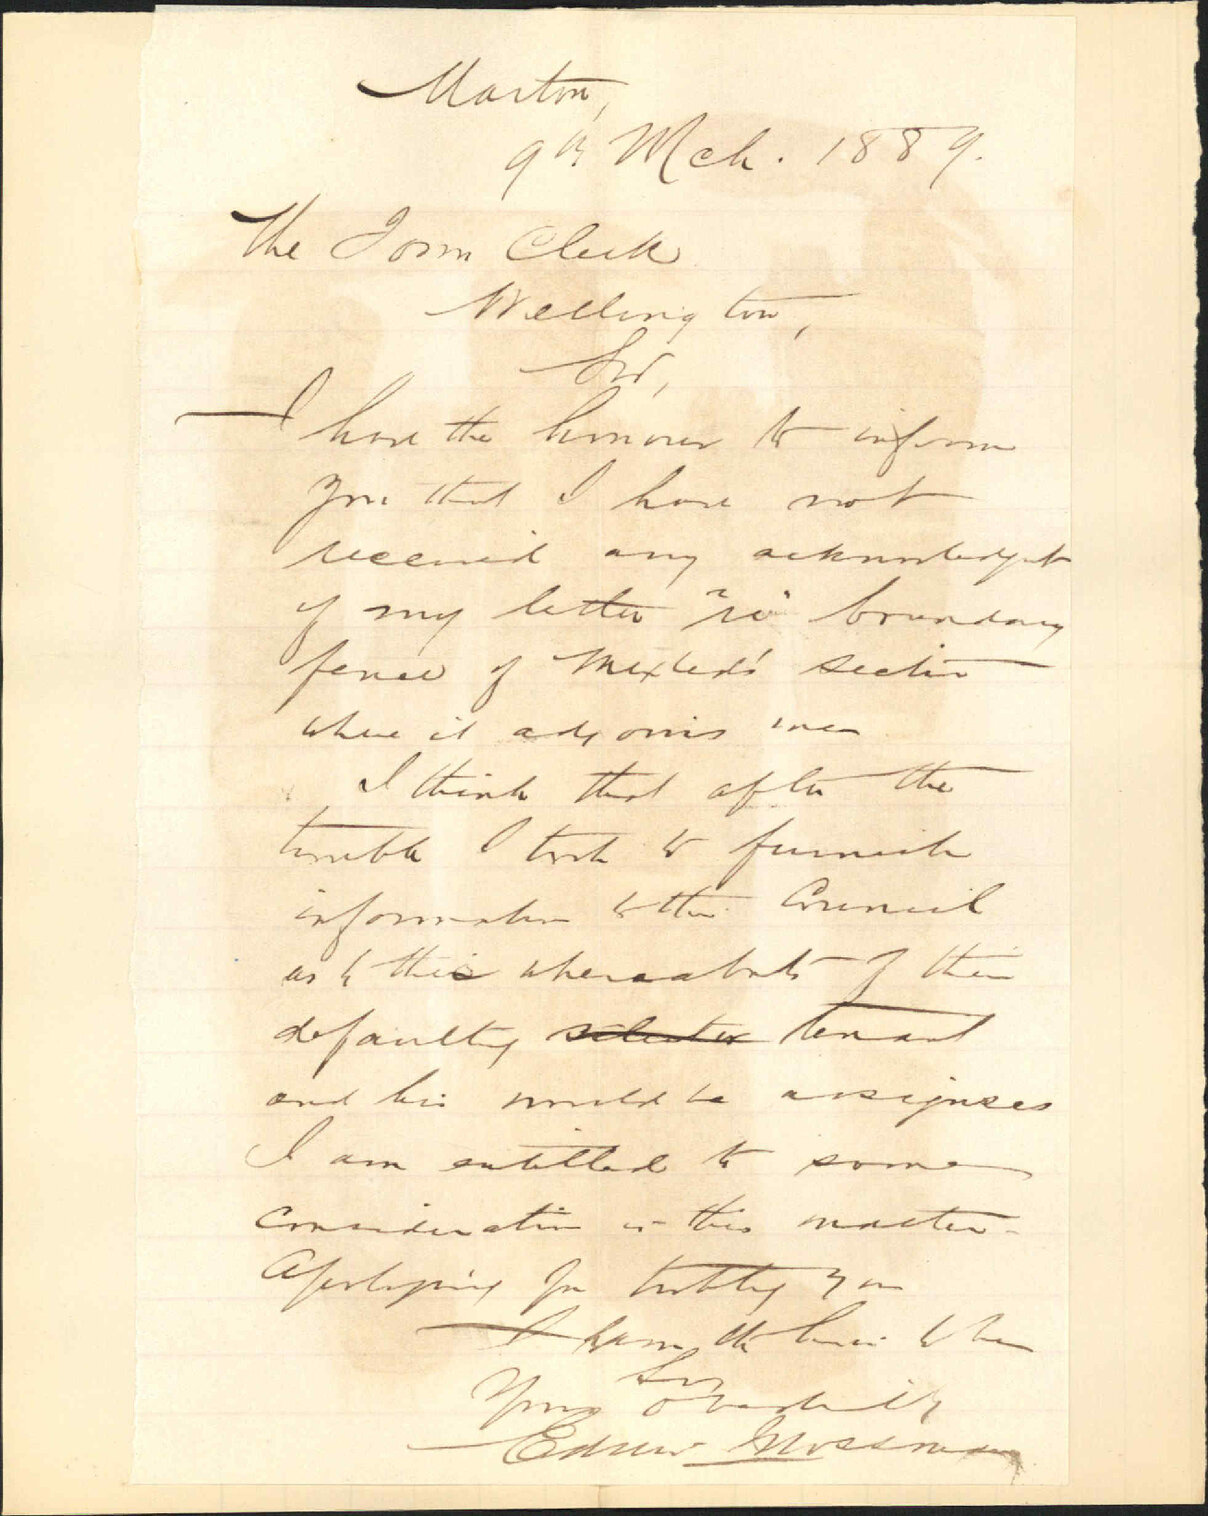 Marton,
9th Mch. 1889.
The Town Clerk
Wellington,
Sir,
I have the honour to inform
you that I have not
received any acknowledgt
of my letter "re" boundary
fence of section
where it adjoins mine
I think that after the
trouble I took to furnish
information to the Council
as to the whereabouts of their
defaulting selector tenant
and his would be assignees
I am entitled to some
consideration in this matter.
Apologising for troubling you
I have the honor to be
Sir
Yours obediently
Mossman